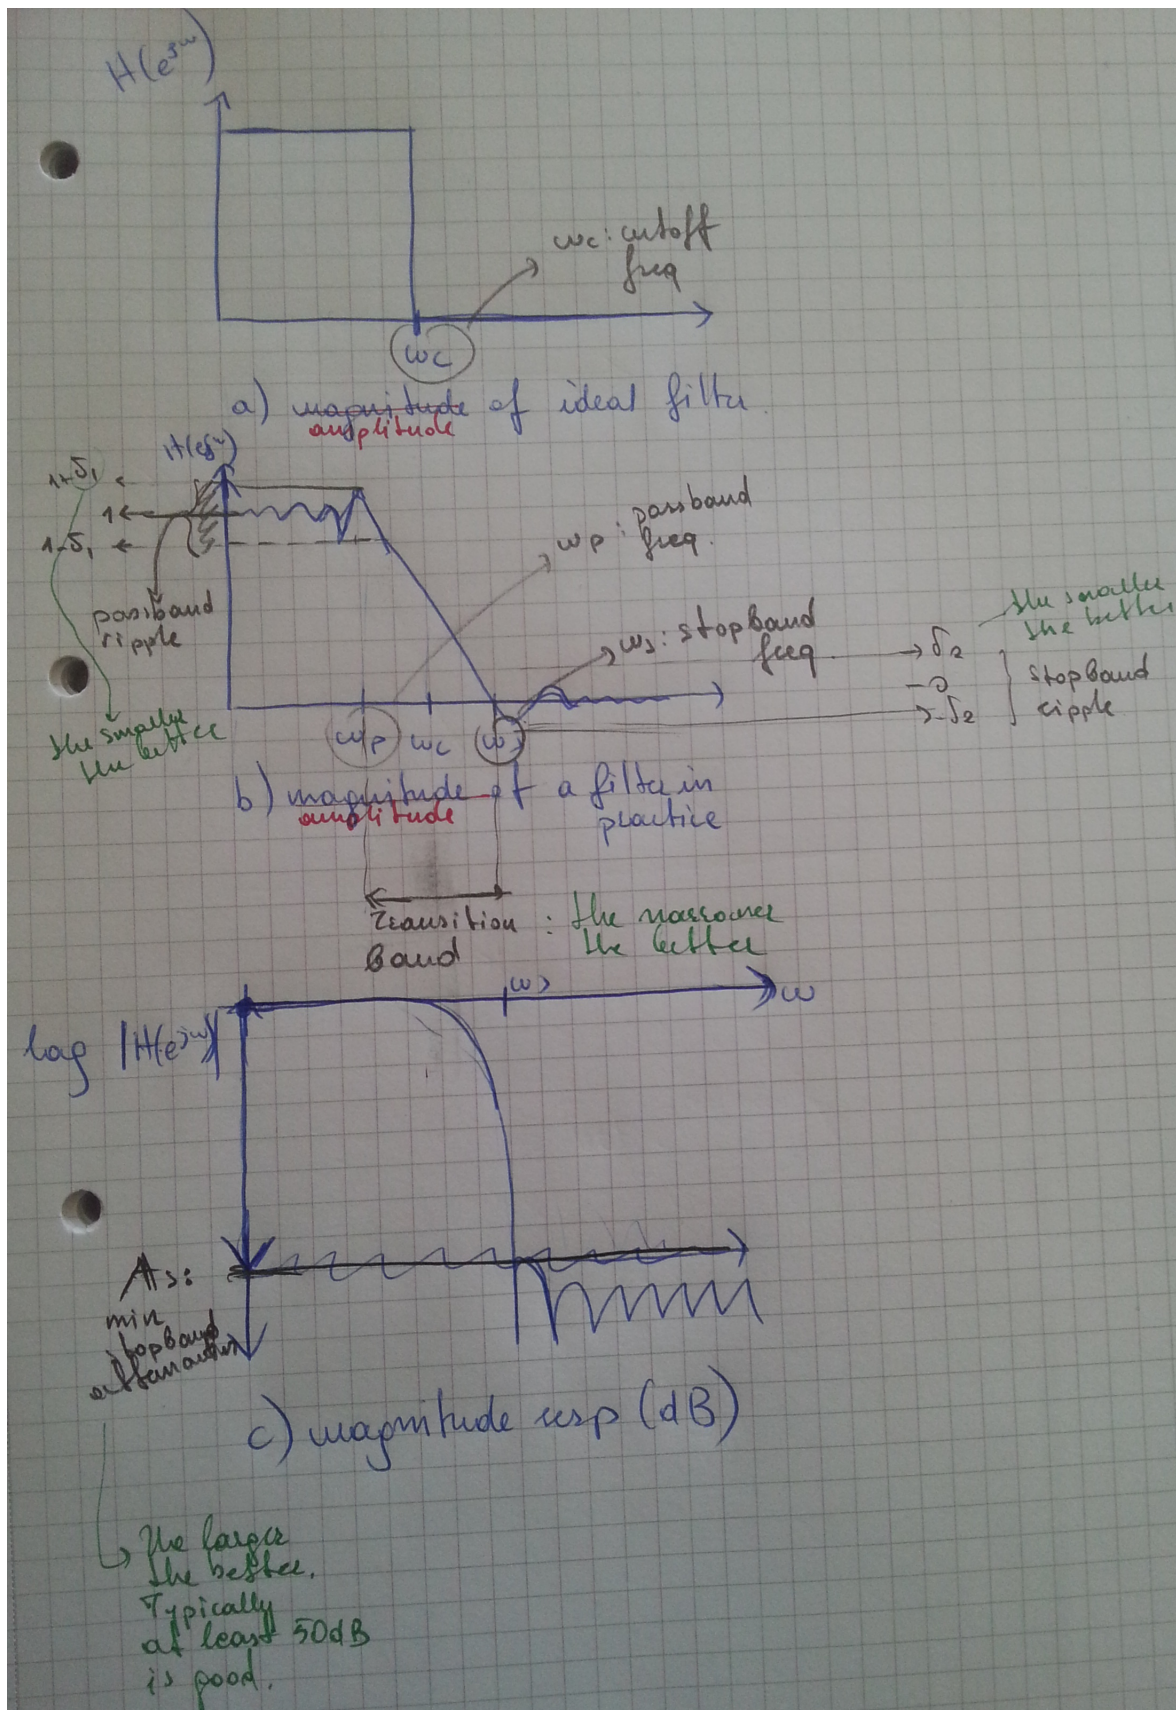 H(e^jω)
ωc: cutoff
freq
ωc
a) magnitude of ideal filter
amplitude
H(e^jω)
1+δ₁
1
1-δ₁
passband
ripple
the smaller
the better
ωp: passband
freq.
ωs: stopband
freq
δ₂
0
-δ₂
stopband
ripple
the smaller
the better
ωp ωc ωs
b) magnitude of a filter in
amplitude
practice
Transition : the narrower
band the better
ωs
ω
log |H(e^jω)|
As:
min
stopband
attenuation
c) magnitude resp (dB)
the larger
the better.
Typically
at least 50dB
is good.